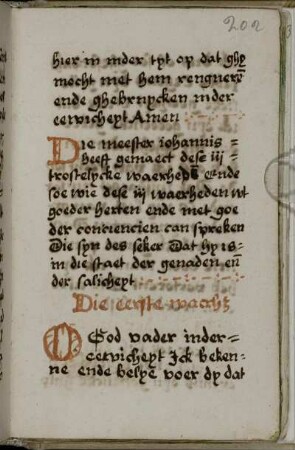 202
hier in inder tyt op dat ghÿ
mocht met hem rengnerē
ende ghebruycken inder
eewicheyt Amen
Die meester iohannis =
heeft gemaect dese iij =
trostelycke waerhedē ende
soe wie dese iij waerheden wt
goeder herten ende met goe
der conciencien can spreken
Die syn des seker Dat hy is =
in die staet der genaden en̄
der salicheyt
Die eerste waerht
O God vader inder =
eewicheyt Ick beken=
ne ende belye voer dy dat